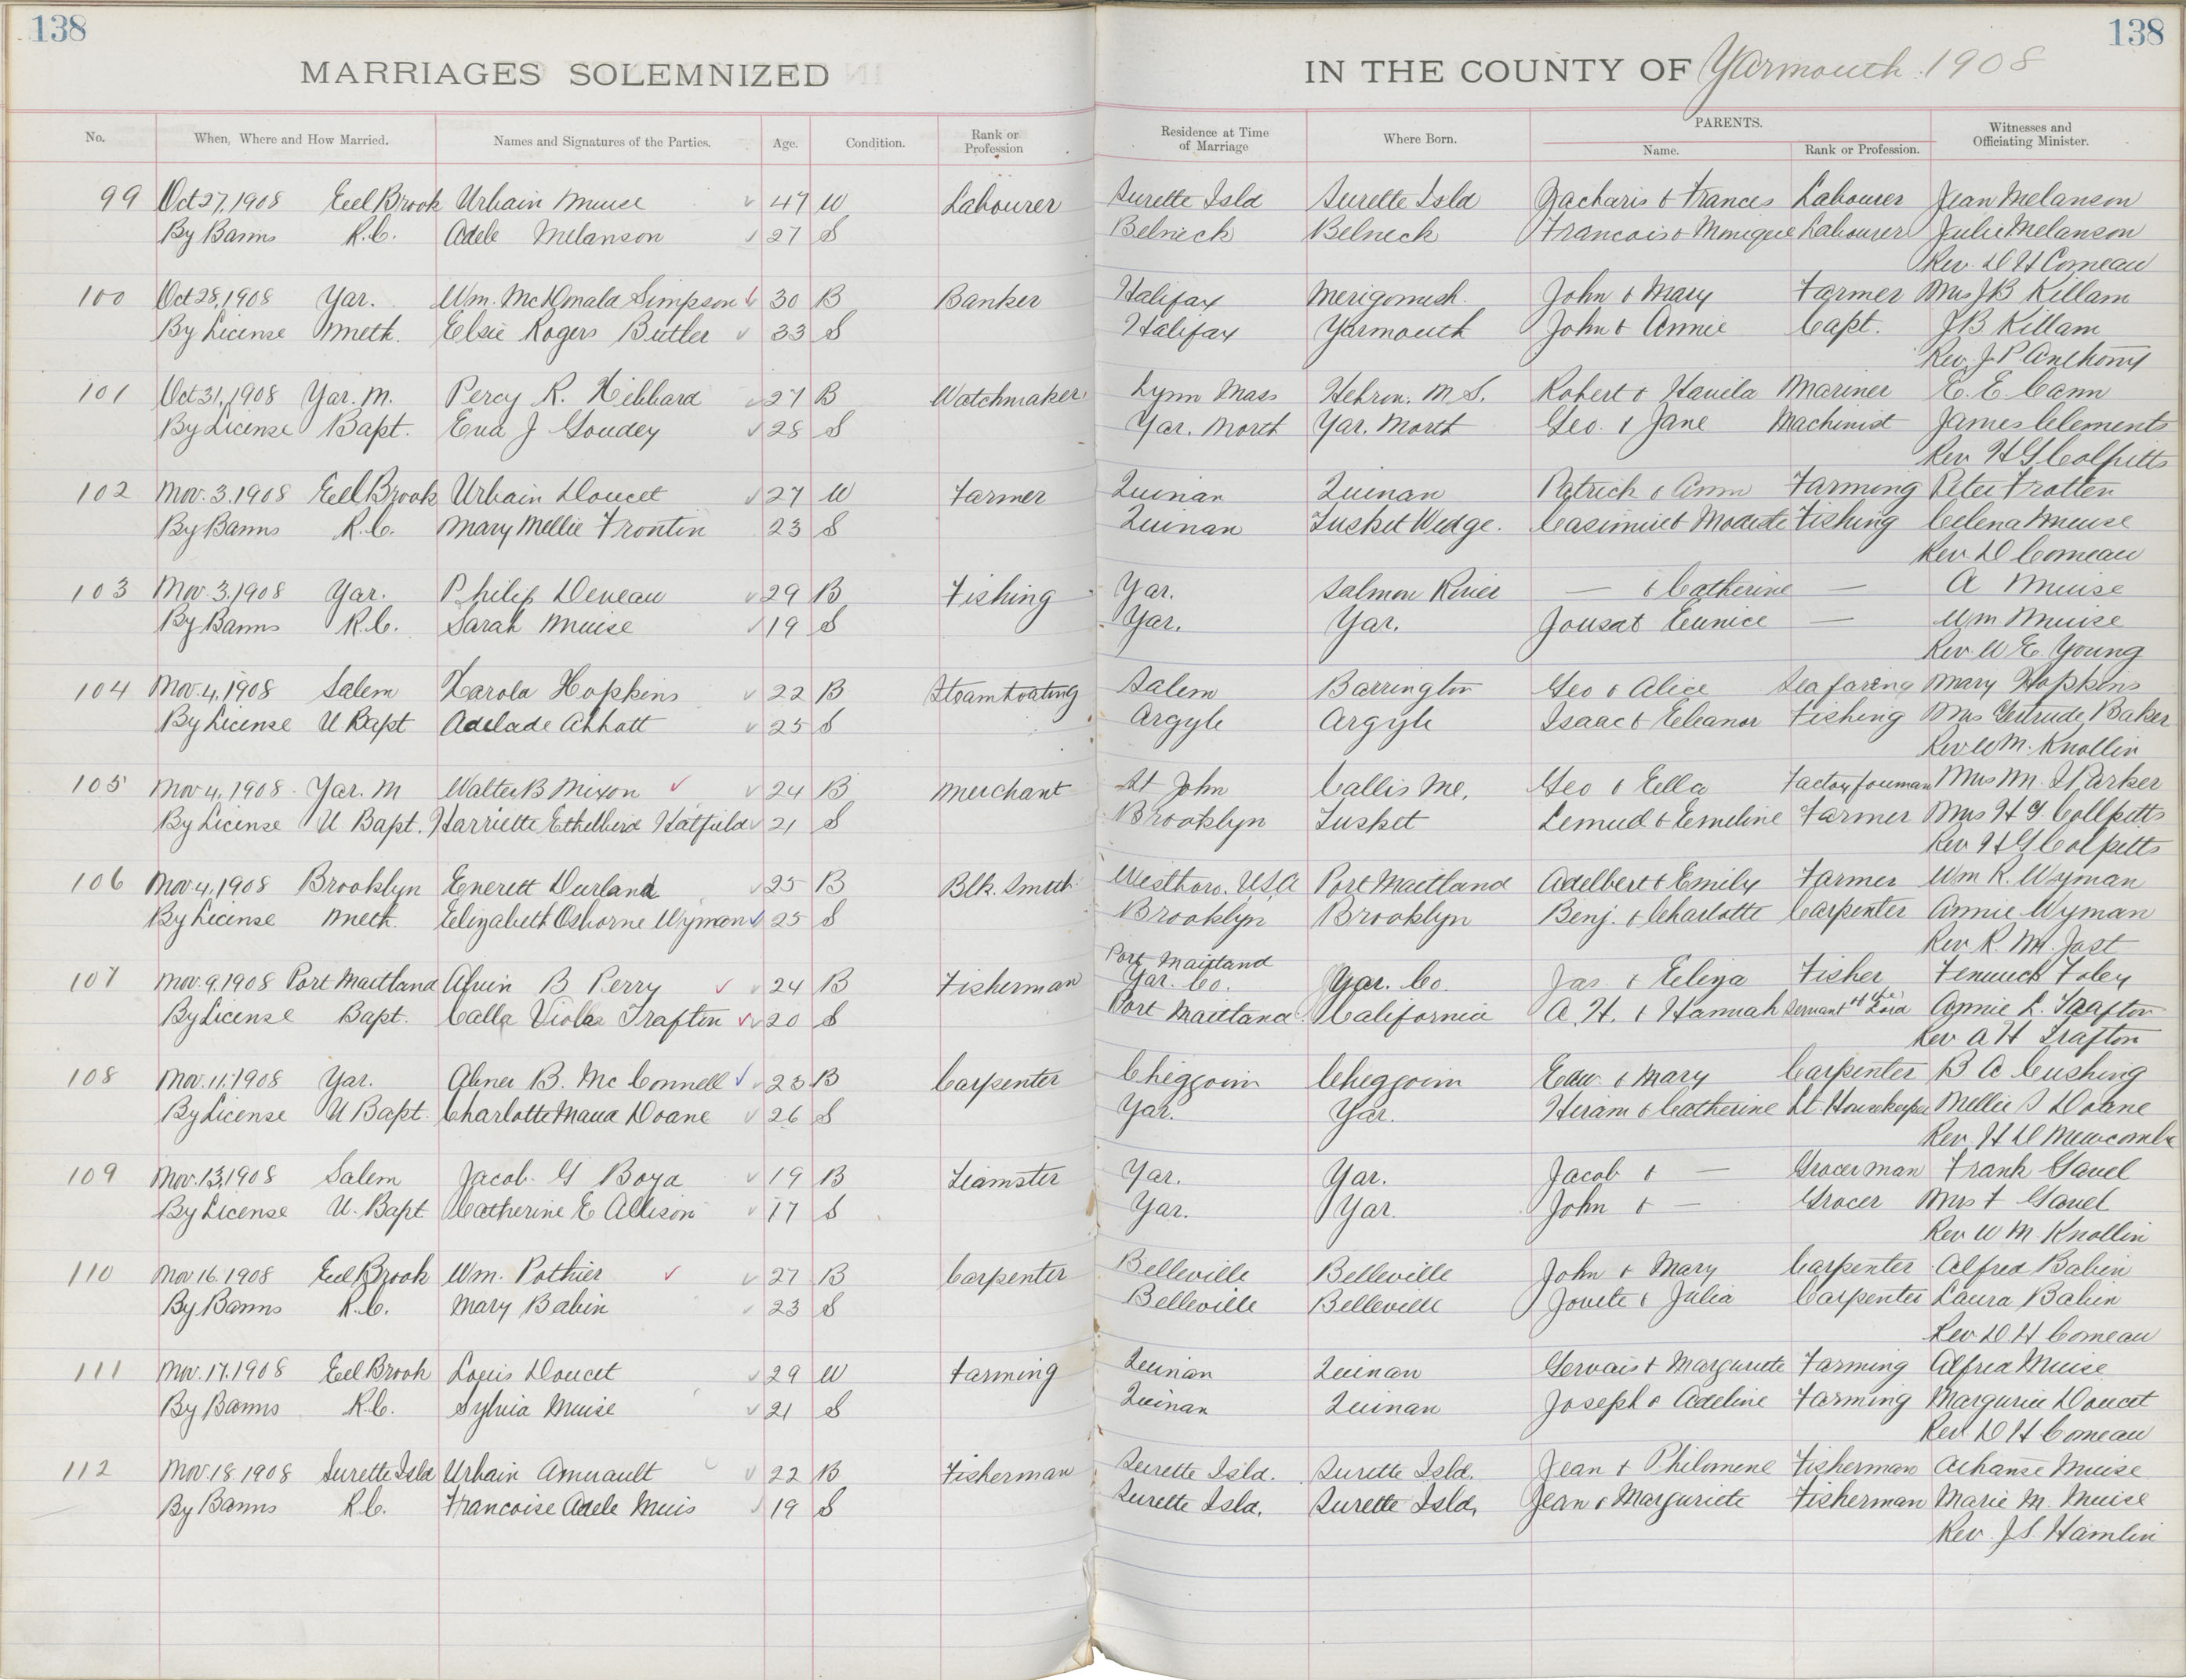 138
138
MARRIAGES SOLEMNIZED IN THE COUNTY OF Yarmouth 1908
No. When, Where and How Married. Names and Signatures of the Parties. Age. Condition. Rank or Profession Residence at Time of Marriage Where Born. PARENTS. Name. Rank or Profession. Witnesses and Officiating Minister.
99 Oct 27, 1908 Eel Brook Urbain Muise 47 W Labourer Surette Isld Surette Isld Zacharis & Frances Labourer Jean Melanson
By Banns R.C. Adele Melanson 27 S Belneck Belneck Francois & Monique Labourer Julie Melanson
Rev. D H Comeau
100 Oct 28, 1908 Yar. Wm. McDonald Simpson 30 B Banker Halifax Merigomish John & Mary Farmer Mrs J B Killam
By License Meth. Elsie Rogers Butler 33 S Halifax Yarmouth John & Annie Capt. J B Killam
Rev. J. P. Anthony
101 Oct 31, 1908 Yar. N. Percy R. Hibbard 27 B Watchmaker Lynn Mass Hebron. N. S. Robert & Havila Mariner E. E. Cann
By License Bapt. Eva J Goudey 28 S Yar. North Yar. North Geo. & Jane Machinist James Clements
Rev H G Colpitts
102 Nov. 3. 1908 Eel Brook Urbain Doucet 27 W Farmer Quinan Quinan Patrick & Ann Farming Peter Frotten
By Banns R.C. Mary Nellie Frontin 23 S Quinan Tusket Wedge. Casimire & Modeste Fishing Celena Muise
Rev. D Comeau
103 Nov. 3. 1908 Yar. Philip Deveau 29 B Fishing Yar. Salmon River — & Catherine — A Muise
By Banns R.C. Sarah Muise 19 S Yar. Yar. Jousat Eunice — Wm Muise
Rev. W E. Young
104 Nov. 4. 1908 Salem Harola Hopkins 22 B Steamboating Salem Barrington Geo & Alice Seafaring Mary Hopkins
By License U Bapt Adelade Abbott 25 S Argyle Argyle Isaac & Eleanor Fishing Mrs Gertrude Baker
Rev W M. Knollin
105 Nov 4, 1908 Yar. N Walter B Nixon 24 B Merchant St John Callis Me. Geo & Ella Factory foreman Mrs M. S Parker
By License U Bapt. Harriette Ethelbird Hatfield 21 S Brooklyn Tusket Lemuel & Emeline Farmer Mrs H G. Collpitts
Rev H G Colpitts
106 Nov. 4, 1908 Brooklyn Everett Durland 25 B Blk. Smith Westboro. USA Port Maitland Adelbert & Emily Farmer Wm R. Wyman
By License Meth. Elizabeth Osborne Wyman 25 S Brooklyn Brooklyn Benj. & Charlotte Carpenter Annie Wyman
Rev R. M. Jost
107 Nov. 9. 1908 Port Maitland Alvin B Perry 24 B Fisherman Port Maitland Yar. Co. Yar. Co. Jas. & Eliza Fisher Fenwick Foley
By License Bapt. Calla Viola Trafton 20 S Port Maitland California A. H. & Hannah Servant of the Lord Annie L. Trafton
Rev A H Trafton
108 Nov. 11. 1908 Yar. Abner B. McConnell 23 B Carpenter Cheggoin Cheggoin Edw. & Mary Carpenter B A Cushing
By License U Bapt. Charlotte Maud Doane 26 S Yar. Yar. Hiram & Catherine Lt Housekeeper Nellie S Doane
Rev. H D Newcomb
109 Nov. 13, 1908 Salem Jacob G Boyd 19 B Teamster Yar. Yar. Jacob & — Grocerman Frank Gavel
By License U. Bapt Catherine E Allison 17 S Yar. Yar. John & — Grocer Mrs F Gavel
Rev W M. Knollin
110 Nov 16. 1908 Eel Brook Wm. Pothier 27 B Carpenter Belleville Belleville John & Mary Carpenter Alfred Babin
By Banns R.C. Mary Babin 23 S Belleville Belleville Jovite & Julia Carpenter Laura Babin
Rev D H Comeau
111 Nov. 17. 1908 Eel Brook Louis Doucet 29 W Farming Quinan Quinan Gervais & Marguriete Farming Alfred Muise
By Banns R.C. Sylvia Muise 21 S Quinan Quinan Joseph & Adeline Farming Margurite Doucet
Rev D H Comeau
112 Nov. 18. 1908 Surette Isld Urbain Amirault 22 B Fisherman Surette Isld. Surette Isld. Jean & Philomene Fisherman Athanse Muise
By Banns R.C. Francoise Adele Muis 19 S Surette Isld. Surette Isld, Jean & Marguriete Fisherman Marie M. Muise
Rev. J. S. Hamlin